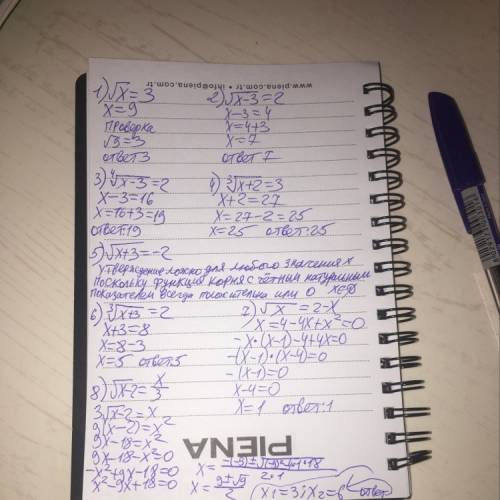 www.piena.com.tr • info@piena.com.tr
1) √x = 3
x = 9
Проверка
√9 = 3
ответ 3
2) √x-3 = 2
x-3 = 4
x = 4+3
x = 7
ответ 7
3) ⁴√x-3 = 2
x-3 = 16
x = 16+3 = 19
ответ: 19
4) ³√x+2 = 3
x+2 = 27
x = 27-2 = 25
x = 25 ответ: 25
5) √x+3 = -2
Утверждение ложно для любого значения x
поскольку функция корня с чётным натуральным
показателем всегда положительна или 0 x∈Ø
6) ³√x+3 = 2
x+3 = 8
x = 8-3
x = 5 ответ: 5
7) √x = 2-x
x = 4-4x+x² = 0
-x•(x-1)-4+4x=0
-(x-1)•(x-4)=0
-(x-1)=0
x-4=0
x = 1 ответ: 1
8) √x-2 = x/3
3√x-2 = x
9(x-2) = x²
9x-18 = x²
9x-18-x²=0
-x²+9x-18=0
x²-9x+18=0
PIENA
x = -(-9)±√(-9)²-4•1•18 / 2•1
x = 9±√9 / 2
x₁=3; x₂=6 ответ